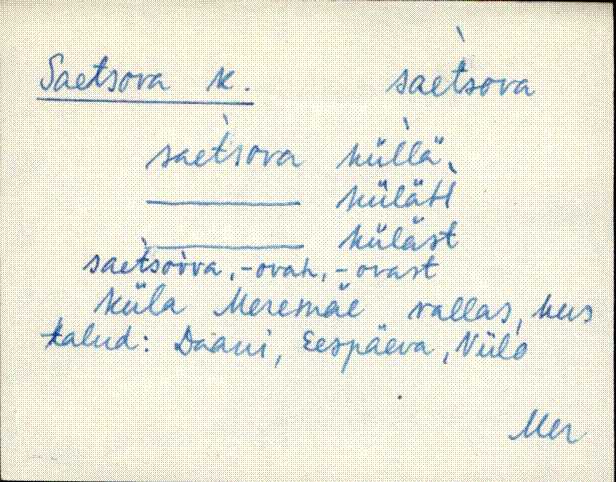 Saetsova k. saet̀sova
saet̀sova küĺlä,
——— külätl
——— küläst
saet̀sovva, -ovah, -ovast
küla Meremäe vallas, kus
talud: Daani, Eespäeva, Niilo
Mer